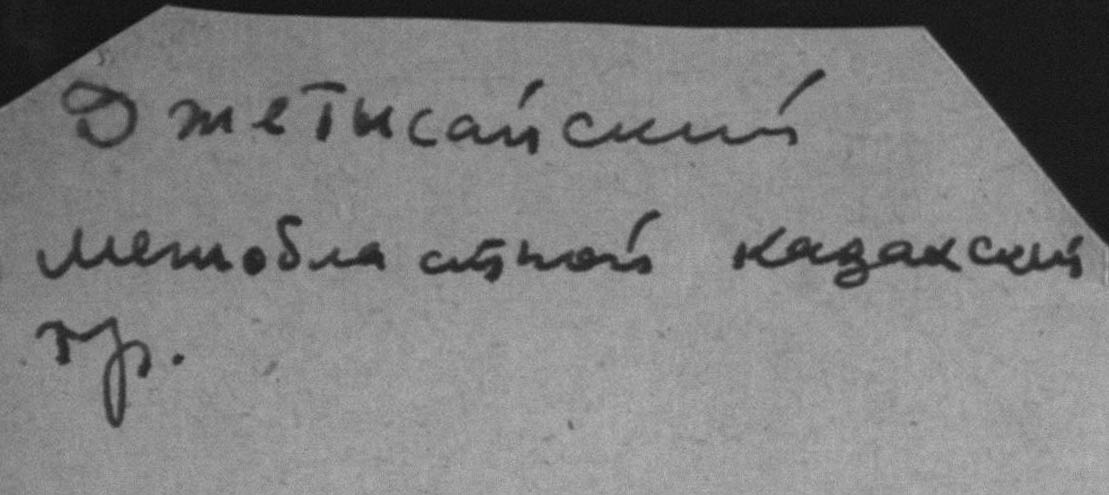 Джетысайский
межобластной казахский
тр.